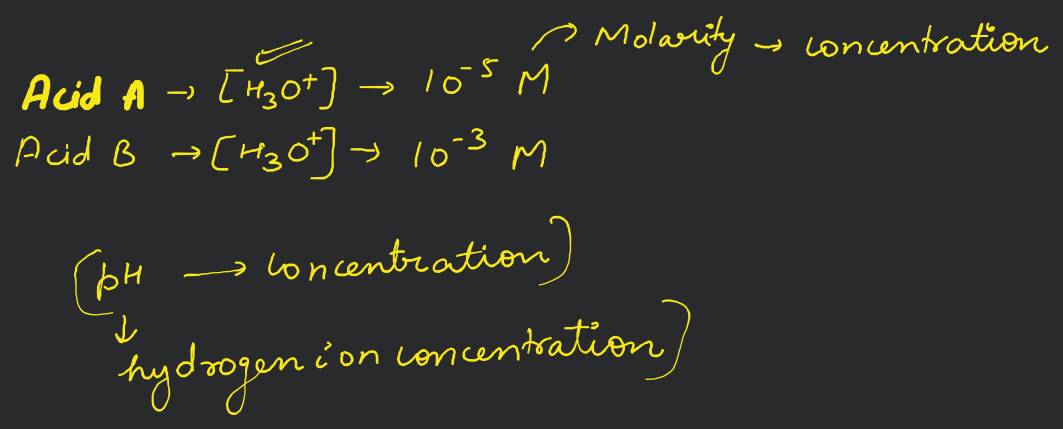 Molarity → concentration
Acid A → [H₃O⁺] → 10⁻⁵ M
Acid B → [H₃O⁺] → 10⁻³ M
(pH → concentration)
↓
hydrogen ion concentration)